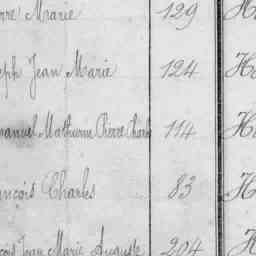 rre Marie 129 H
eph Jean Marie 124 H
manuel Mathurin Pierre Charle 114 H
nçois Charles 83 H
çois Jean Marie Auguste 204 H